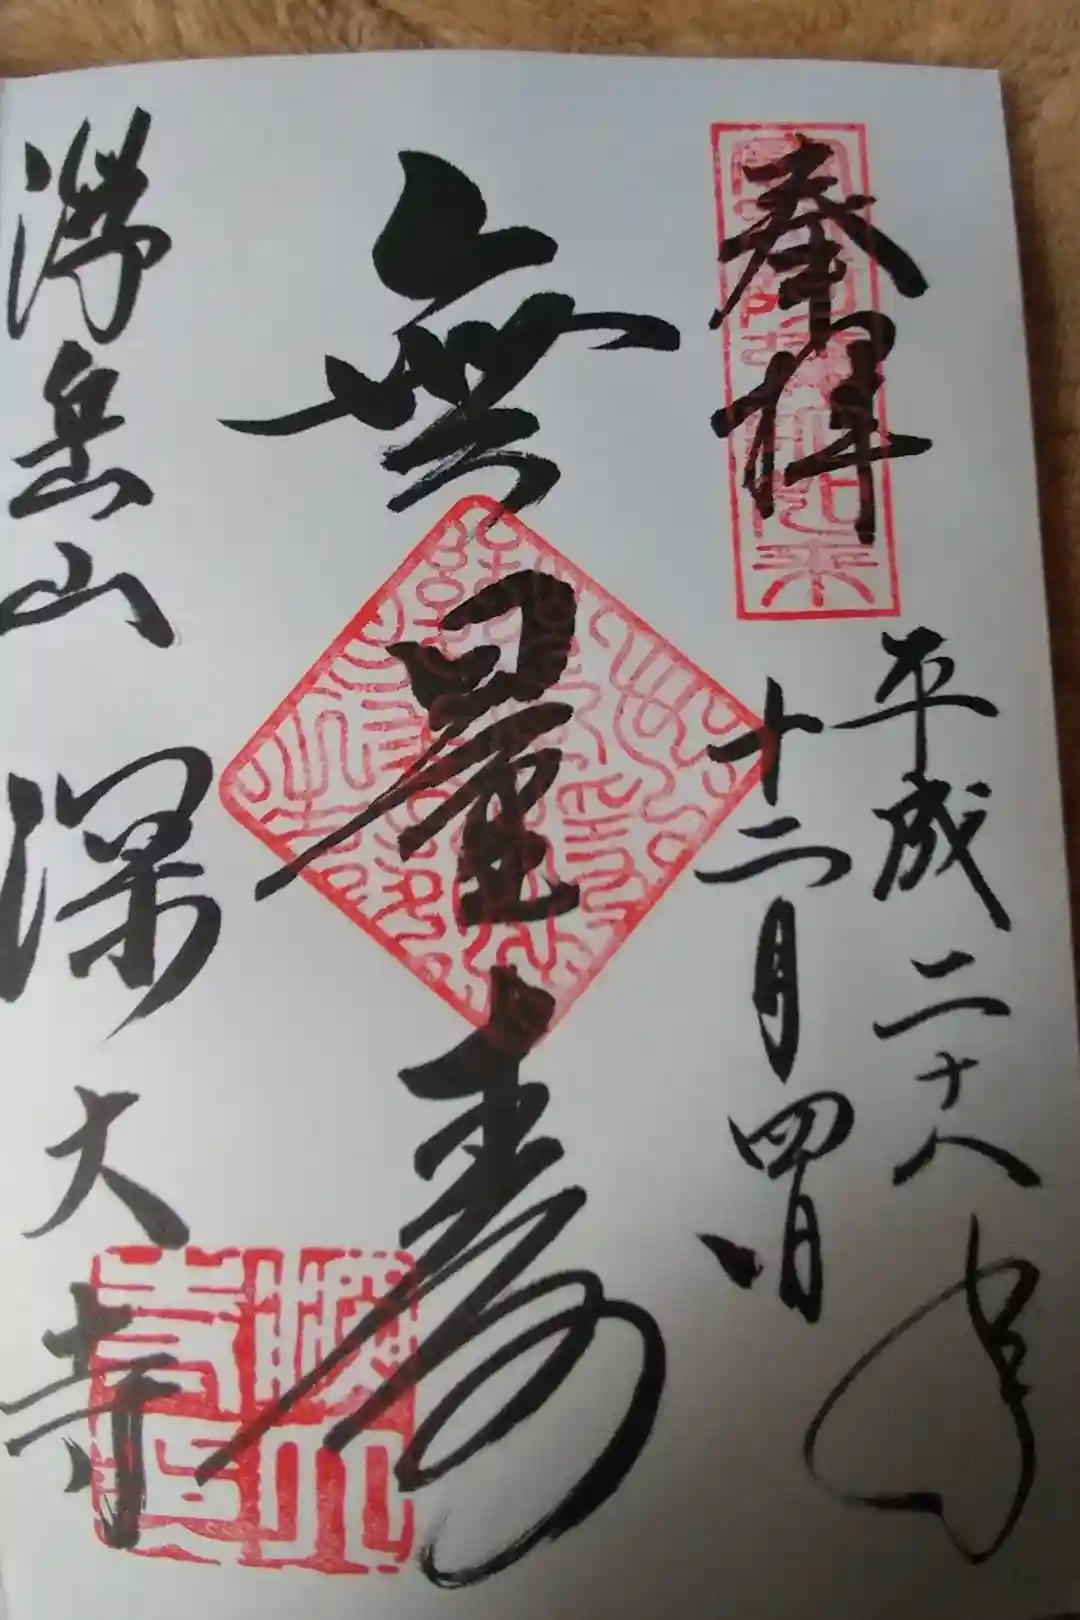 奉拝
平成二十八年
十二月四日
無量寿
浮岳山 深大寺